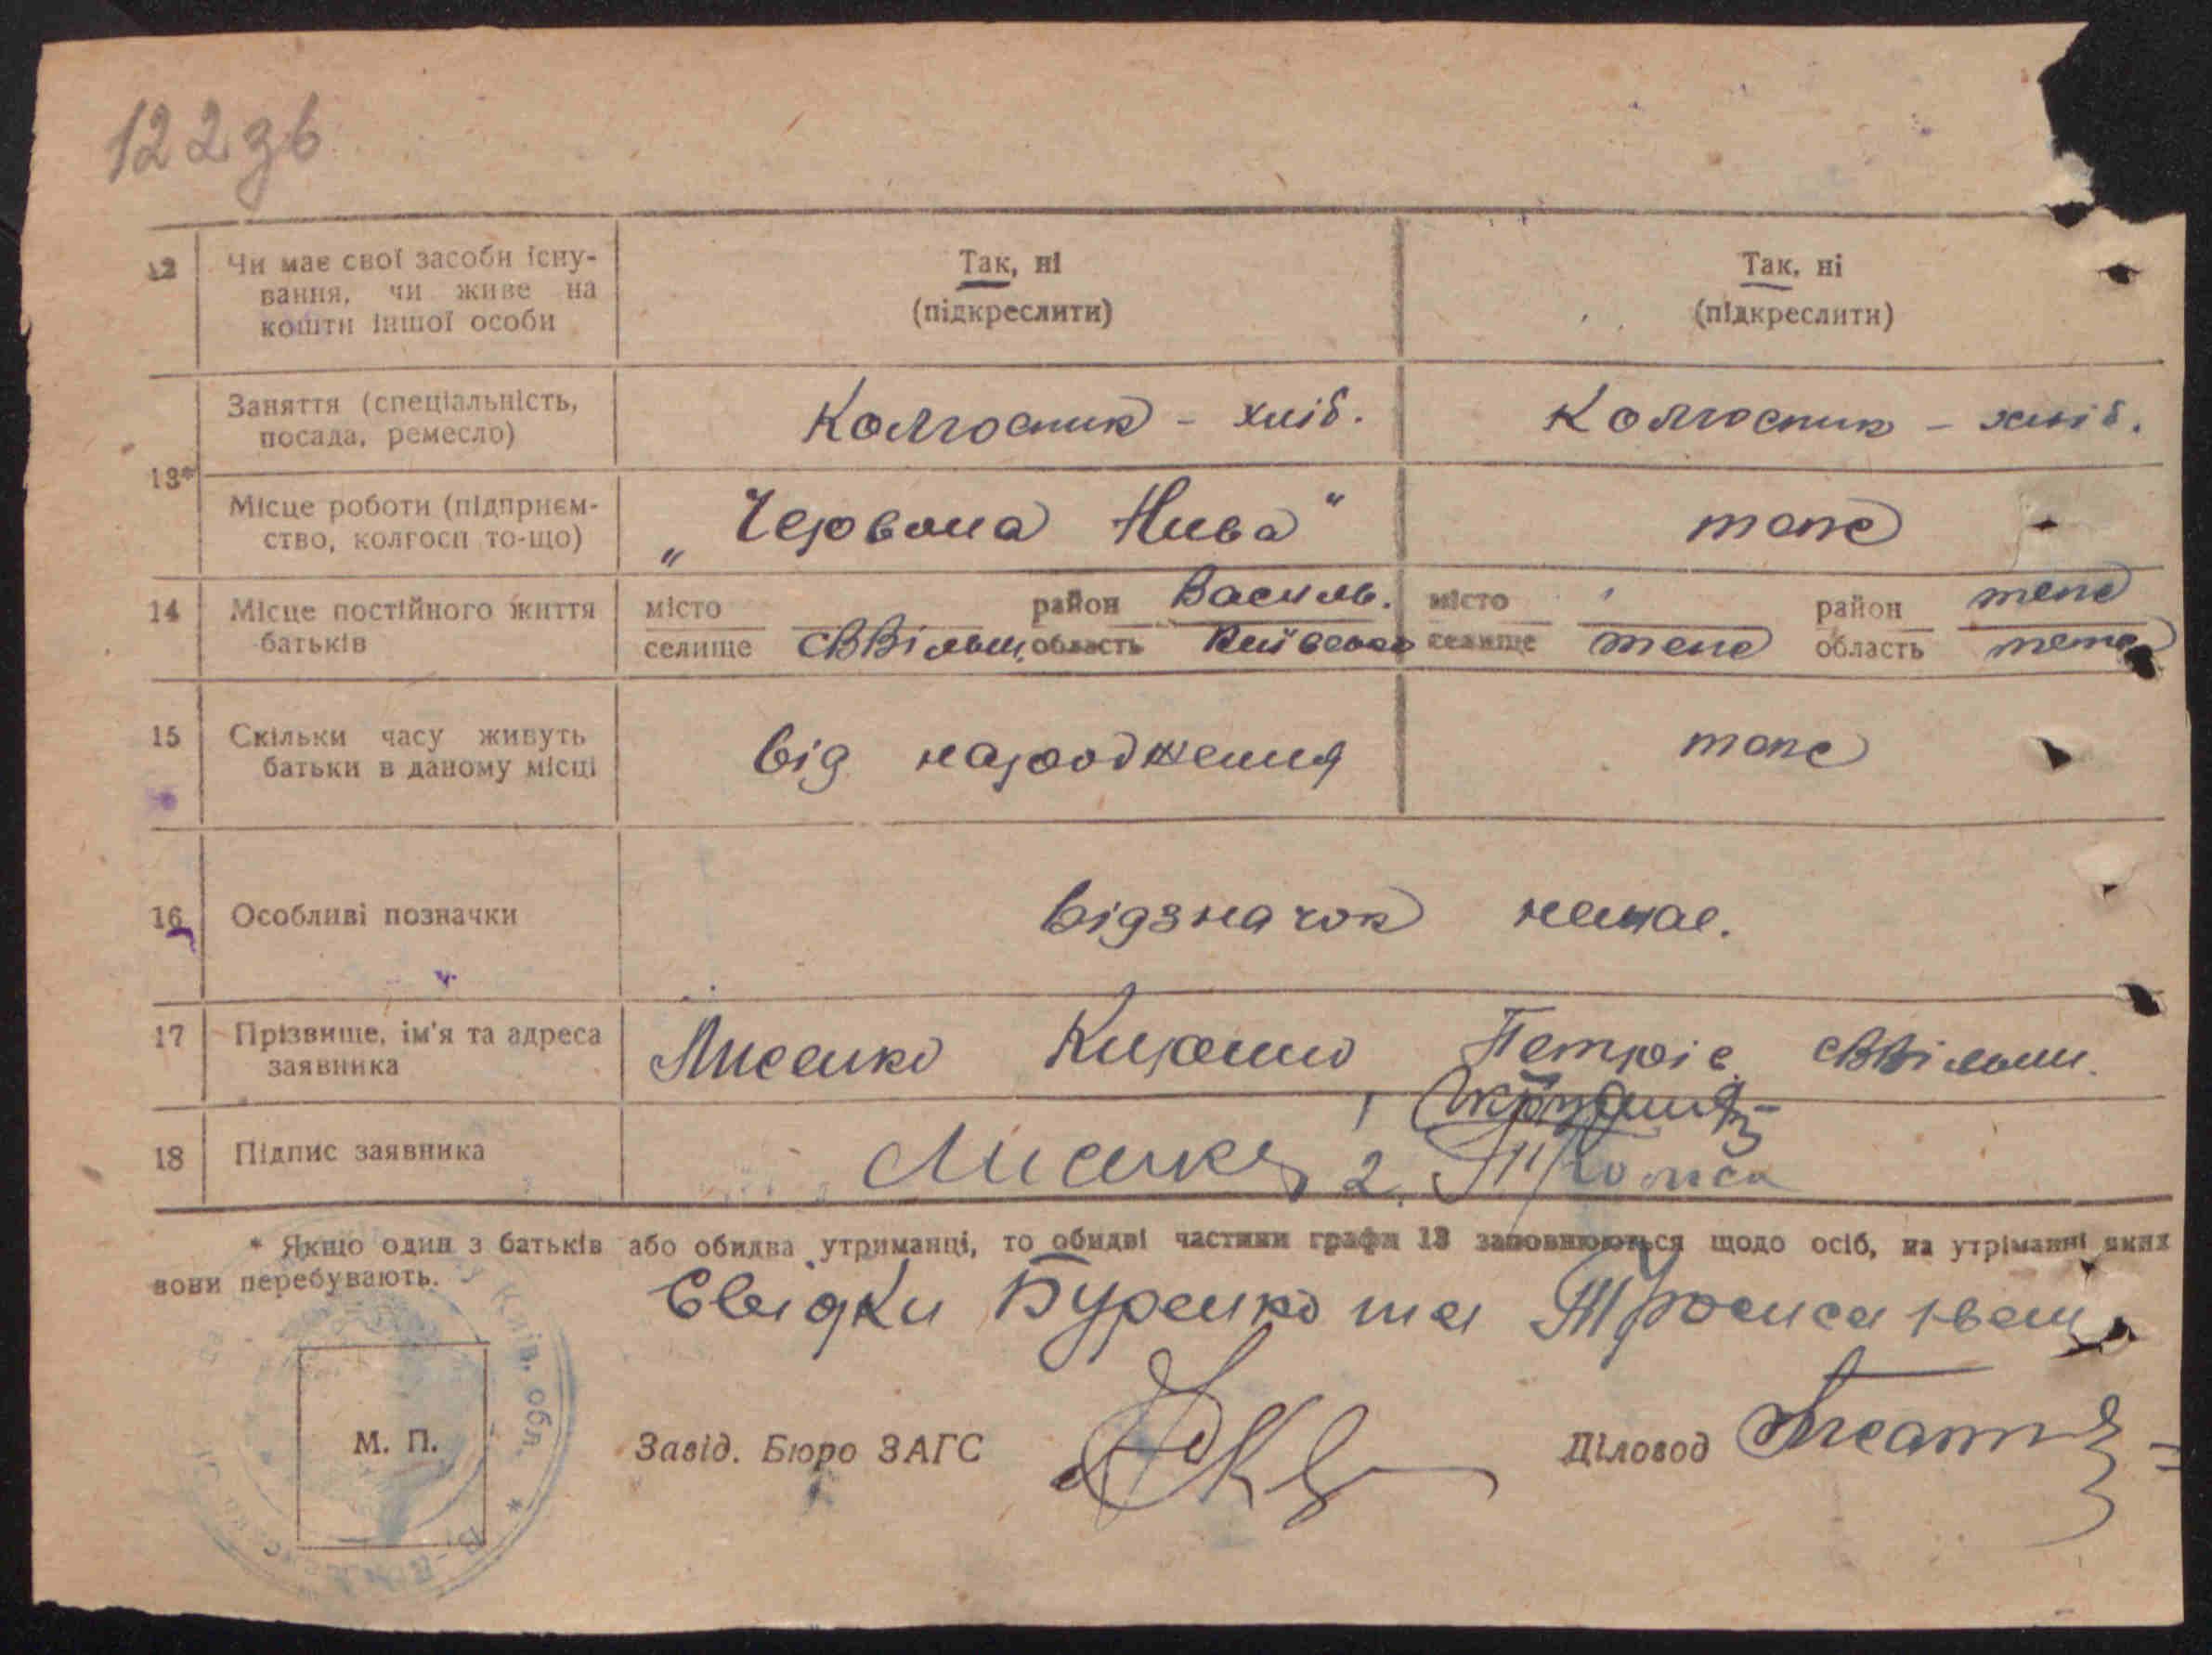 122зв
12 Чи має свої засоби існу-
вання, чи живе на
кошти іншої особи
Так, ні
(підкреслити)
Так, ні
(підкреслити)
13*
Заняття (спеціальність,
посада, ремесло)
Колгоспник - хліб.
Колгоспник - хліб.
Місце роботи (підприєм-
ство, колгосп то-що)
„Червона Нива"
теж
14 Місце постійного життя
батьків
місто
селище
район Василь.
область Київська
місто
селище теж
район теж
область теж
15 Скільки часу живуть
батьки в даному місці
від народження
теж
16 Особливі позначки
відзначок немає.
17 Прізвище, ім'я та адреса
заявника
Лисенко
18 Підпис заявника
Лисенко
1
2.
* Якщо один з батьків або обидва утриманці, то обидві частини графи 13 заповнюються щодо осіб, на утріманні яких
вони перебувають.
Свидки Буренко та
Київ. обл.
М. П.
Завід. Бюро ЗАГС
Діловод